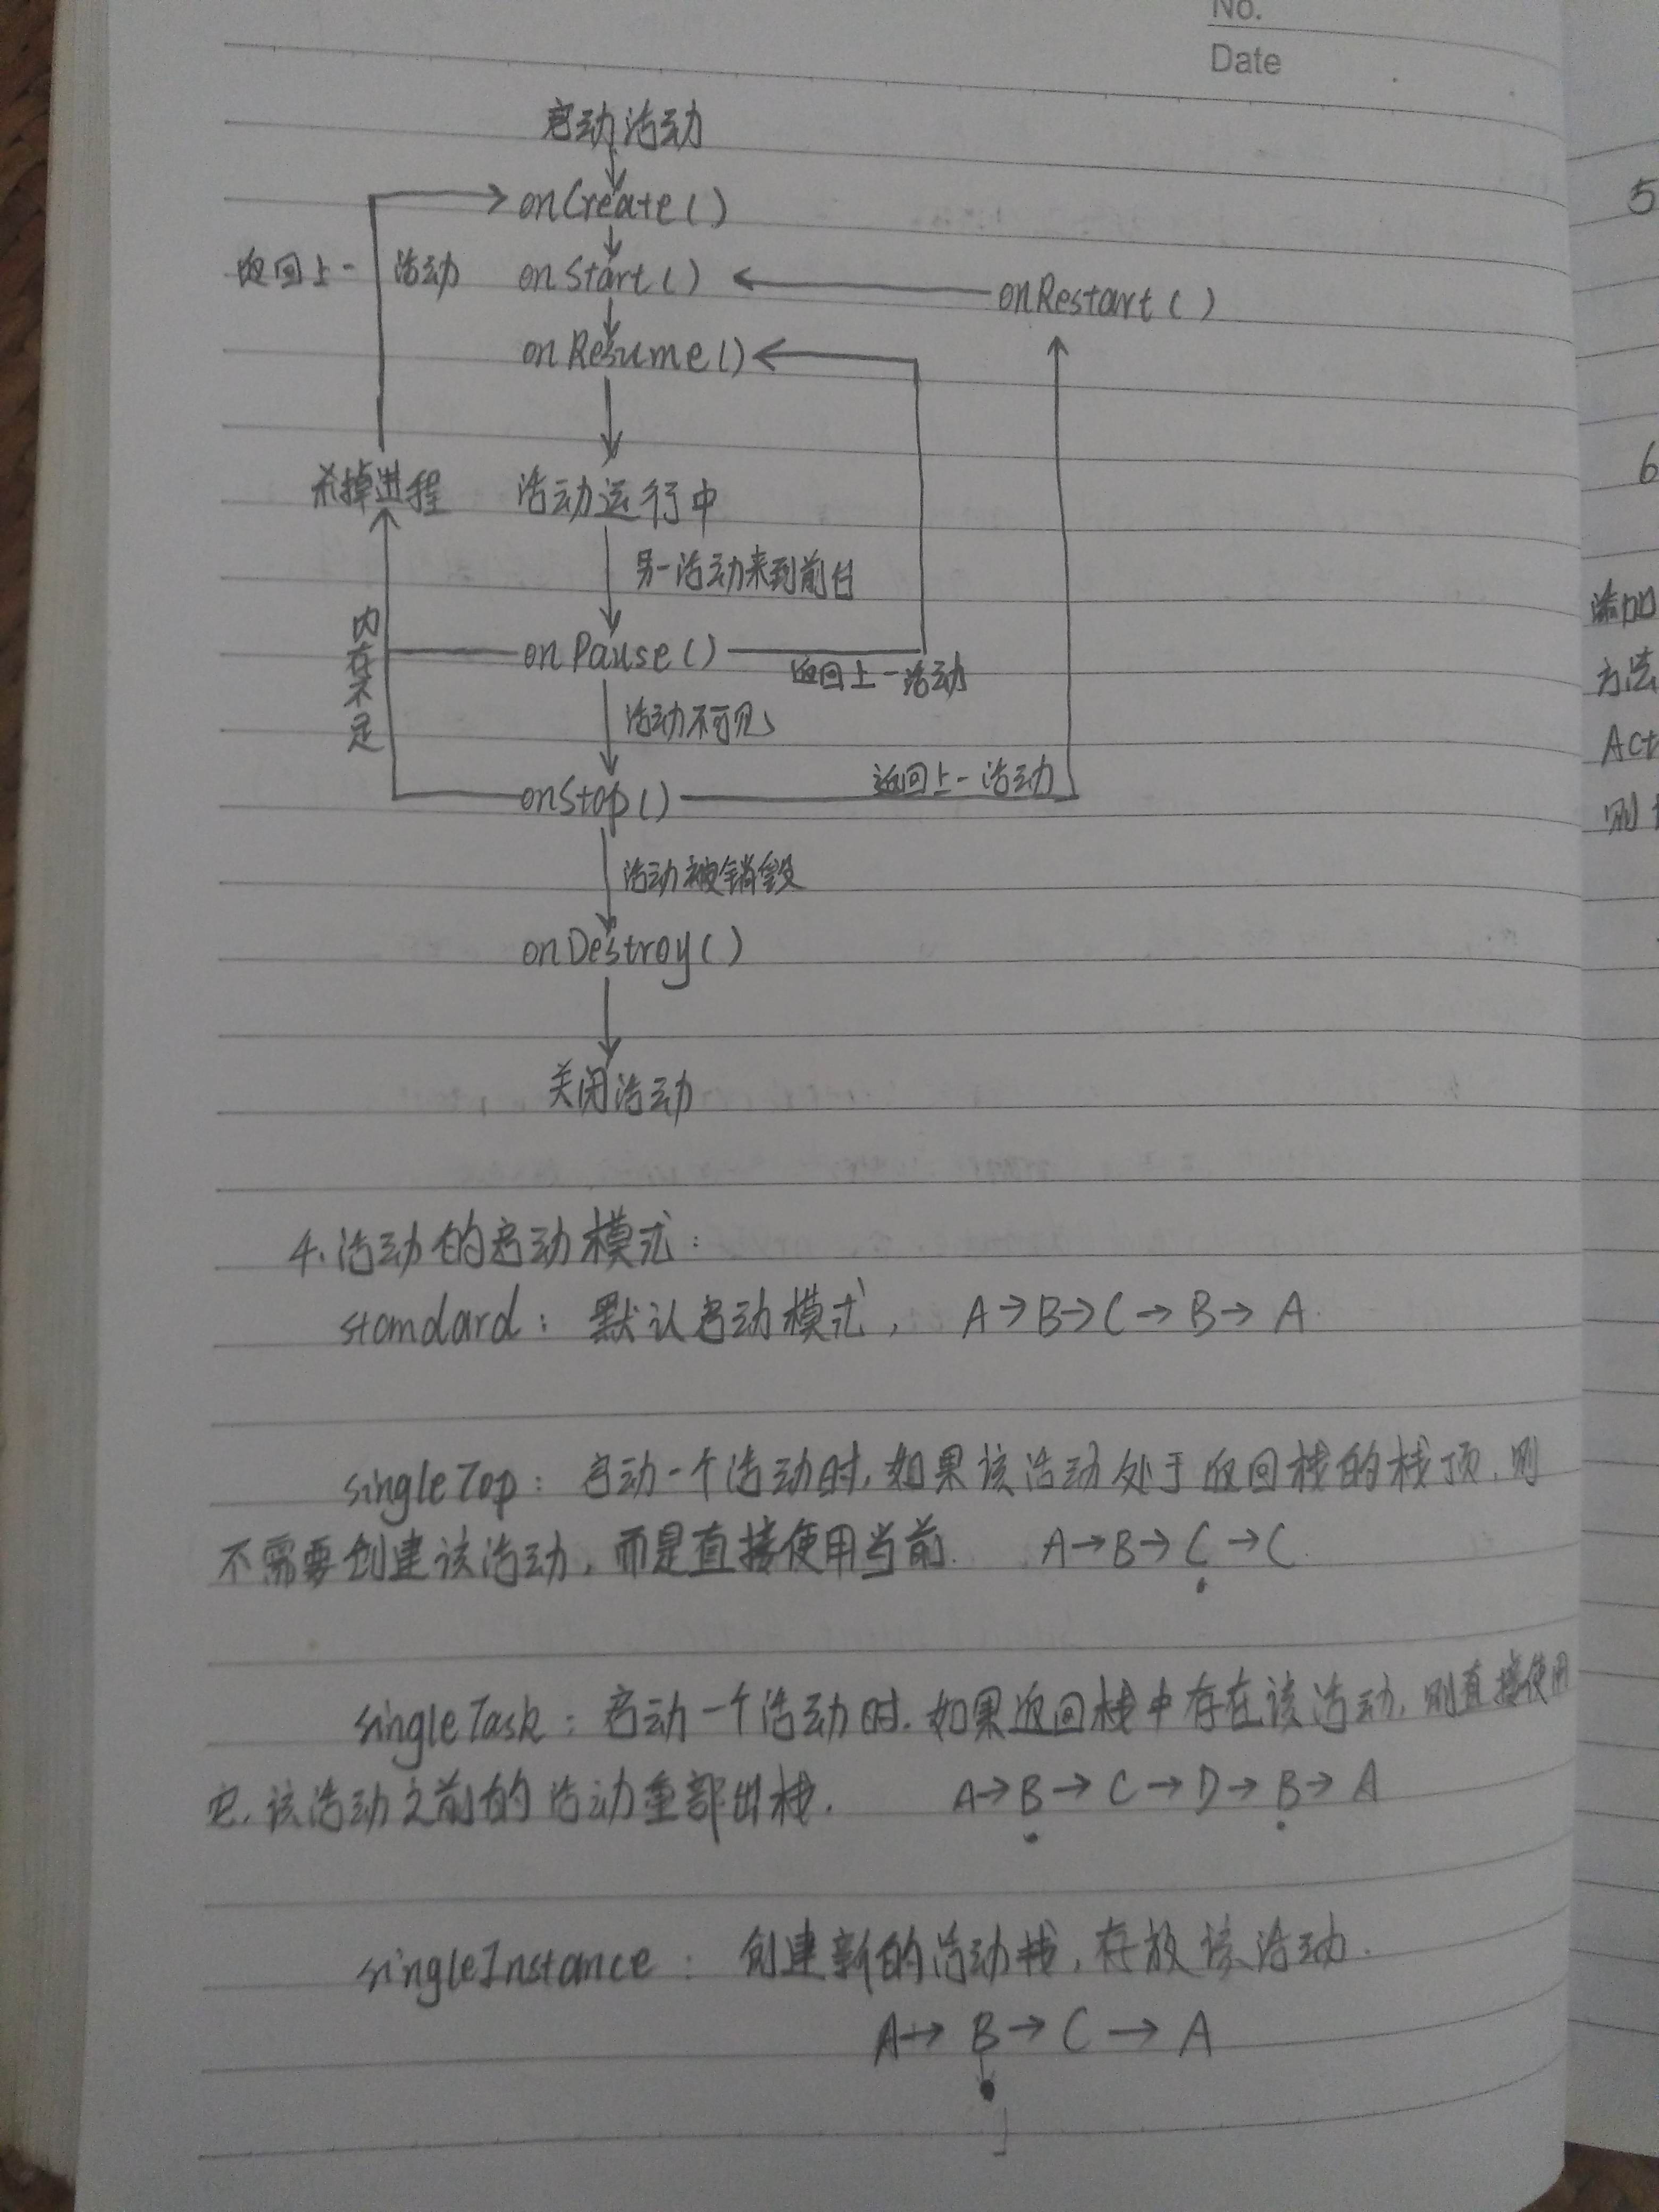 No.
Date
启动活动
onCreate()
返回上一活动
onStart()
onRestart()
onResume()
杀掉进程
活动运行中
另一活动来到前台
内存不足
onPause()
返回上一活动
活动不可见
onStop()
返回上一活动
活动被销毁
onDestroy()
关闭活动
4.活动的启动模式:
standard: 默认启动模式, A→B→C→B→A.
singleTop: 启动一个活动时,如果该活动处于返回栈的栈顶,则
不需要创建该活动,而是直接使用当前. A→B→C→C.
singleTask: 启动一个活动时.如果返回栈中存在该活动,则直接使用
它.该活动之前的活动全部出栈. A→B→C→D→B→A
singleInstance: 创建新的活动栈,存放该活动.
A→B→C→A
5
6
添加
方法
Act
则